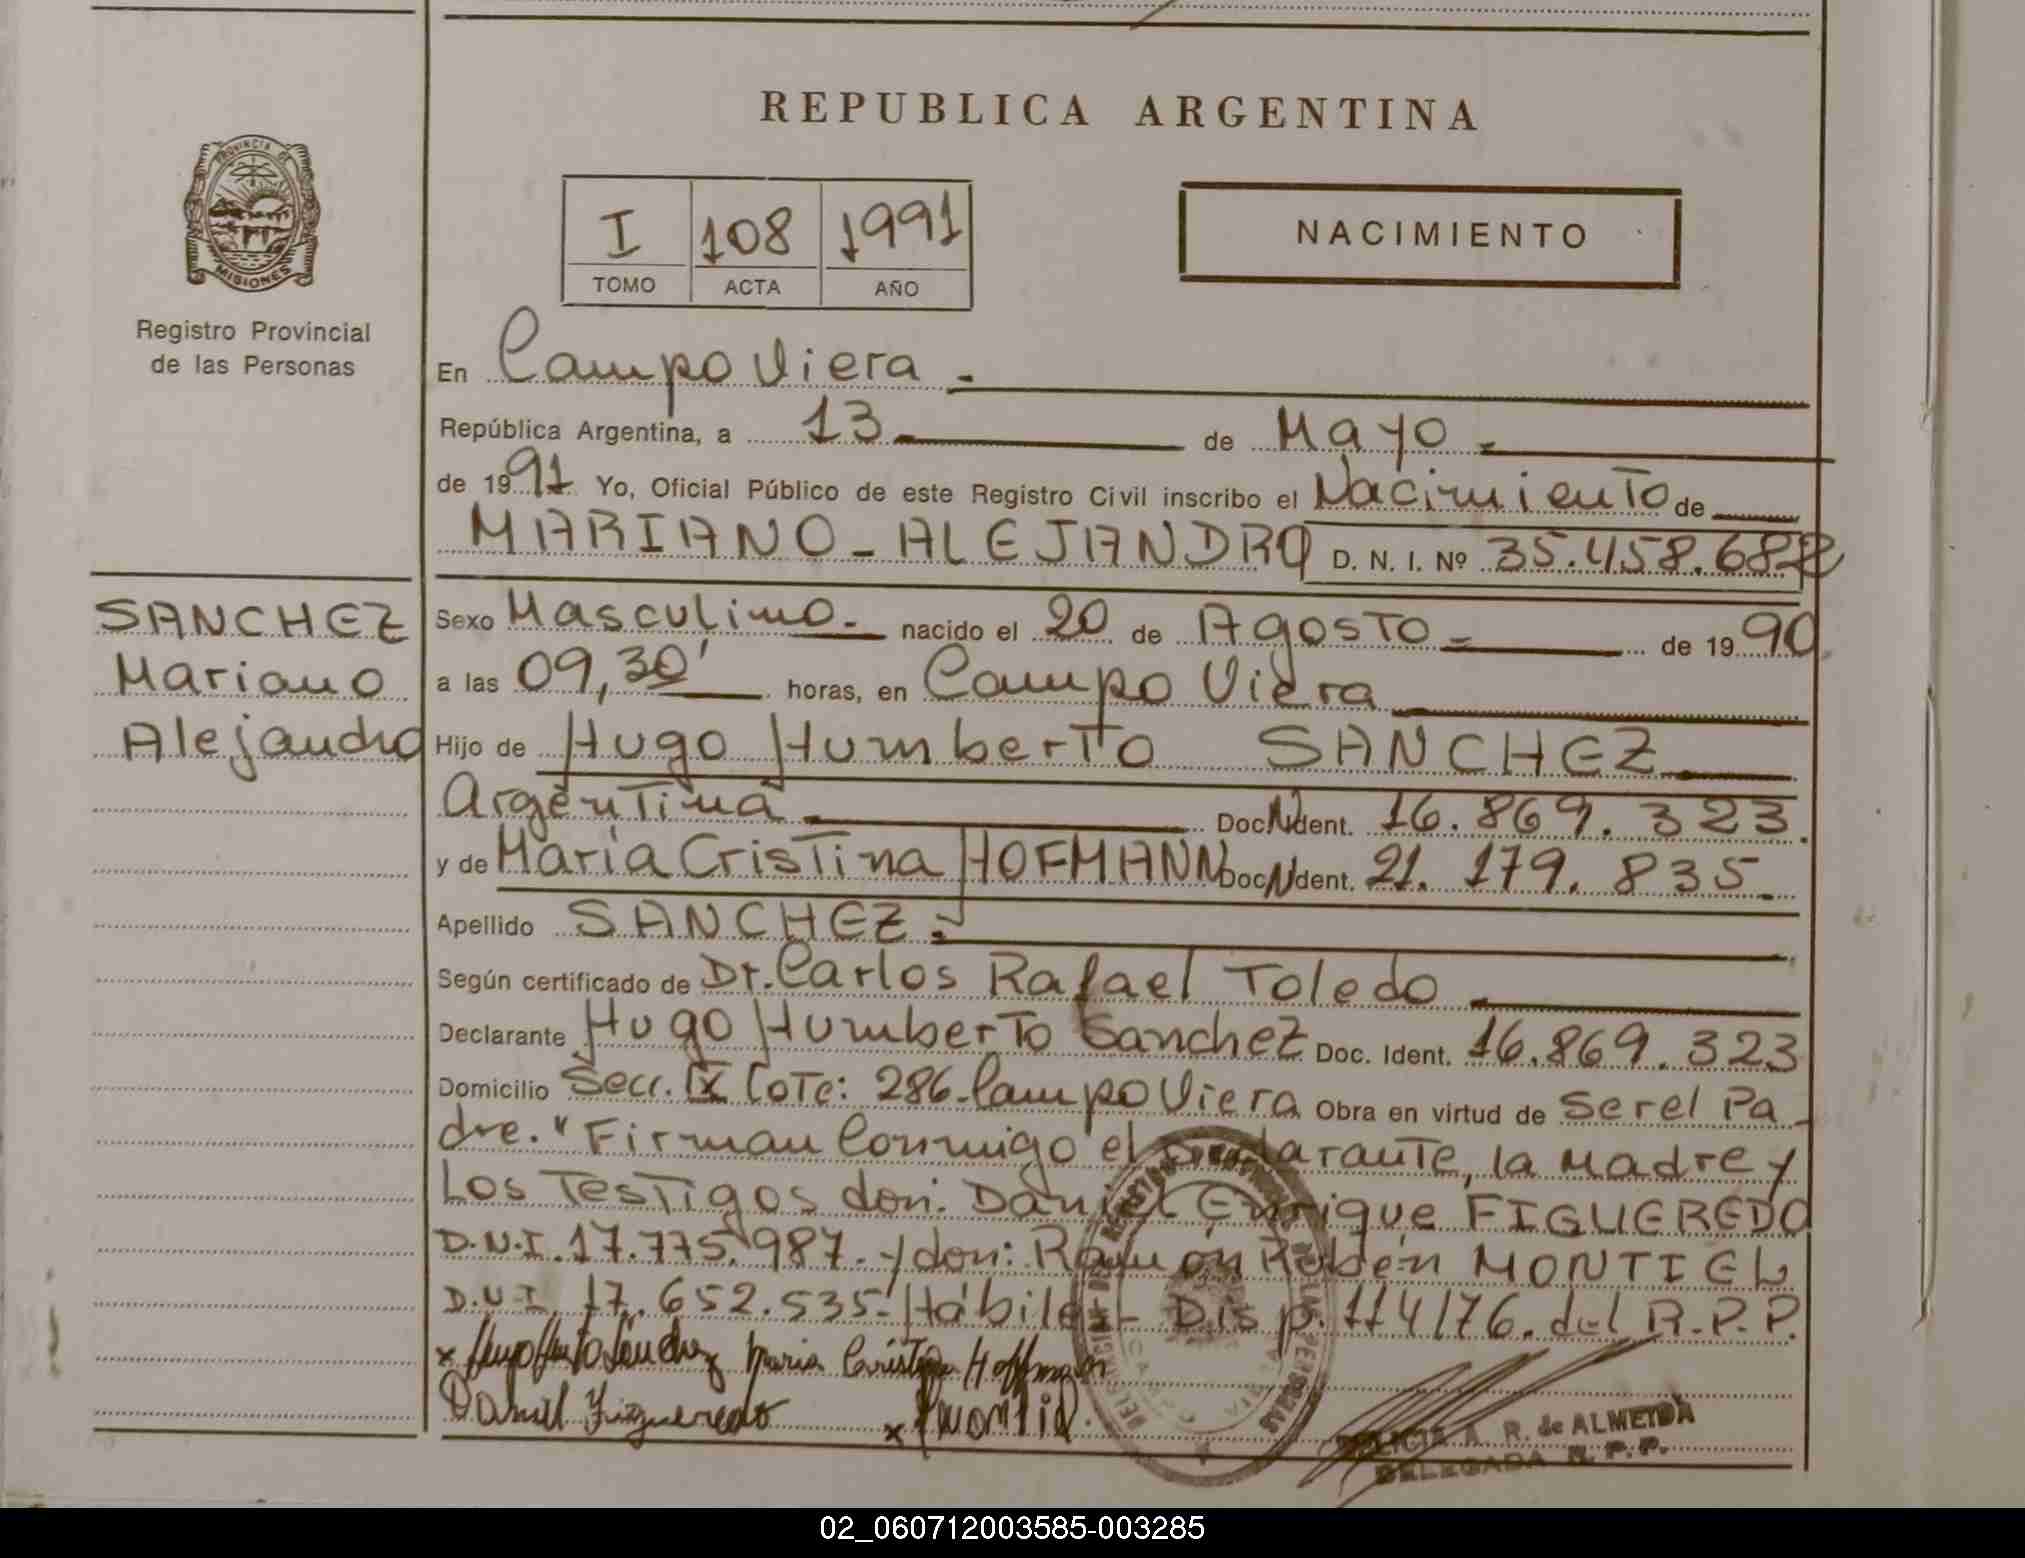 REPUBLICA ARGENTINA
PROVINCIA DE
MISIONES
Registro Provincial
de las Personas
I 108 1991
TOMO ACTA AÑO
NACIMIENTO
En Campo Viera -
República Argentina, a 13 de Mayo -
de 1991 Yo, Oficial Público de este Registro Civil inscribo el Nacimiento de
MARIANO - ALEJANDRO D. N. I. Nº 35.458.682
SANCHEZ
Mariano
Alejandro
Sexo Masculino. nacido el 20 de Agosto - de 1990
a las 09,30' horas, en Campo Viera
Hijo de Hugo Humberto SANCHEZ
Argentina Doc. Ident. 16.869.323.
y de María Cristina HOFMANN Doc. Ident. 21.179.835.
Apellido SANCHEZ.
Según certificado de Dr. Carlos Rafael Toledo
Declarante Hugo Humberto Sanchez Doc. Ident. 16.869.323
Domicilio Secc. IX Lote: 286. Campo Viera Obra en virtud de Ser el Pa-
dre. "Firman Conmigo el Declarante, la Madre y
Los Testigos don: Daniel Enrique FIGUEREDO
D.N.I. 17.775.987. y don: Ramón Rubén MONTIEL
D.N.I. 17.652.535. Hábiles - Disp. 114/76. del R.P.P.
x Hugo Humberto Sanchez Maria Cristina Hoffman
Daniel Figueredo x Montiel
A. R. de ALMEIDA
DELEGADA R. P. P.
02_060712003585-003285